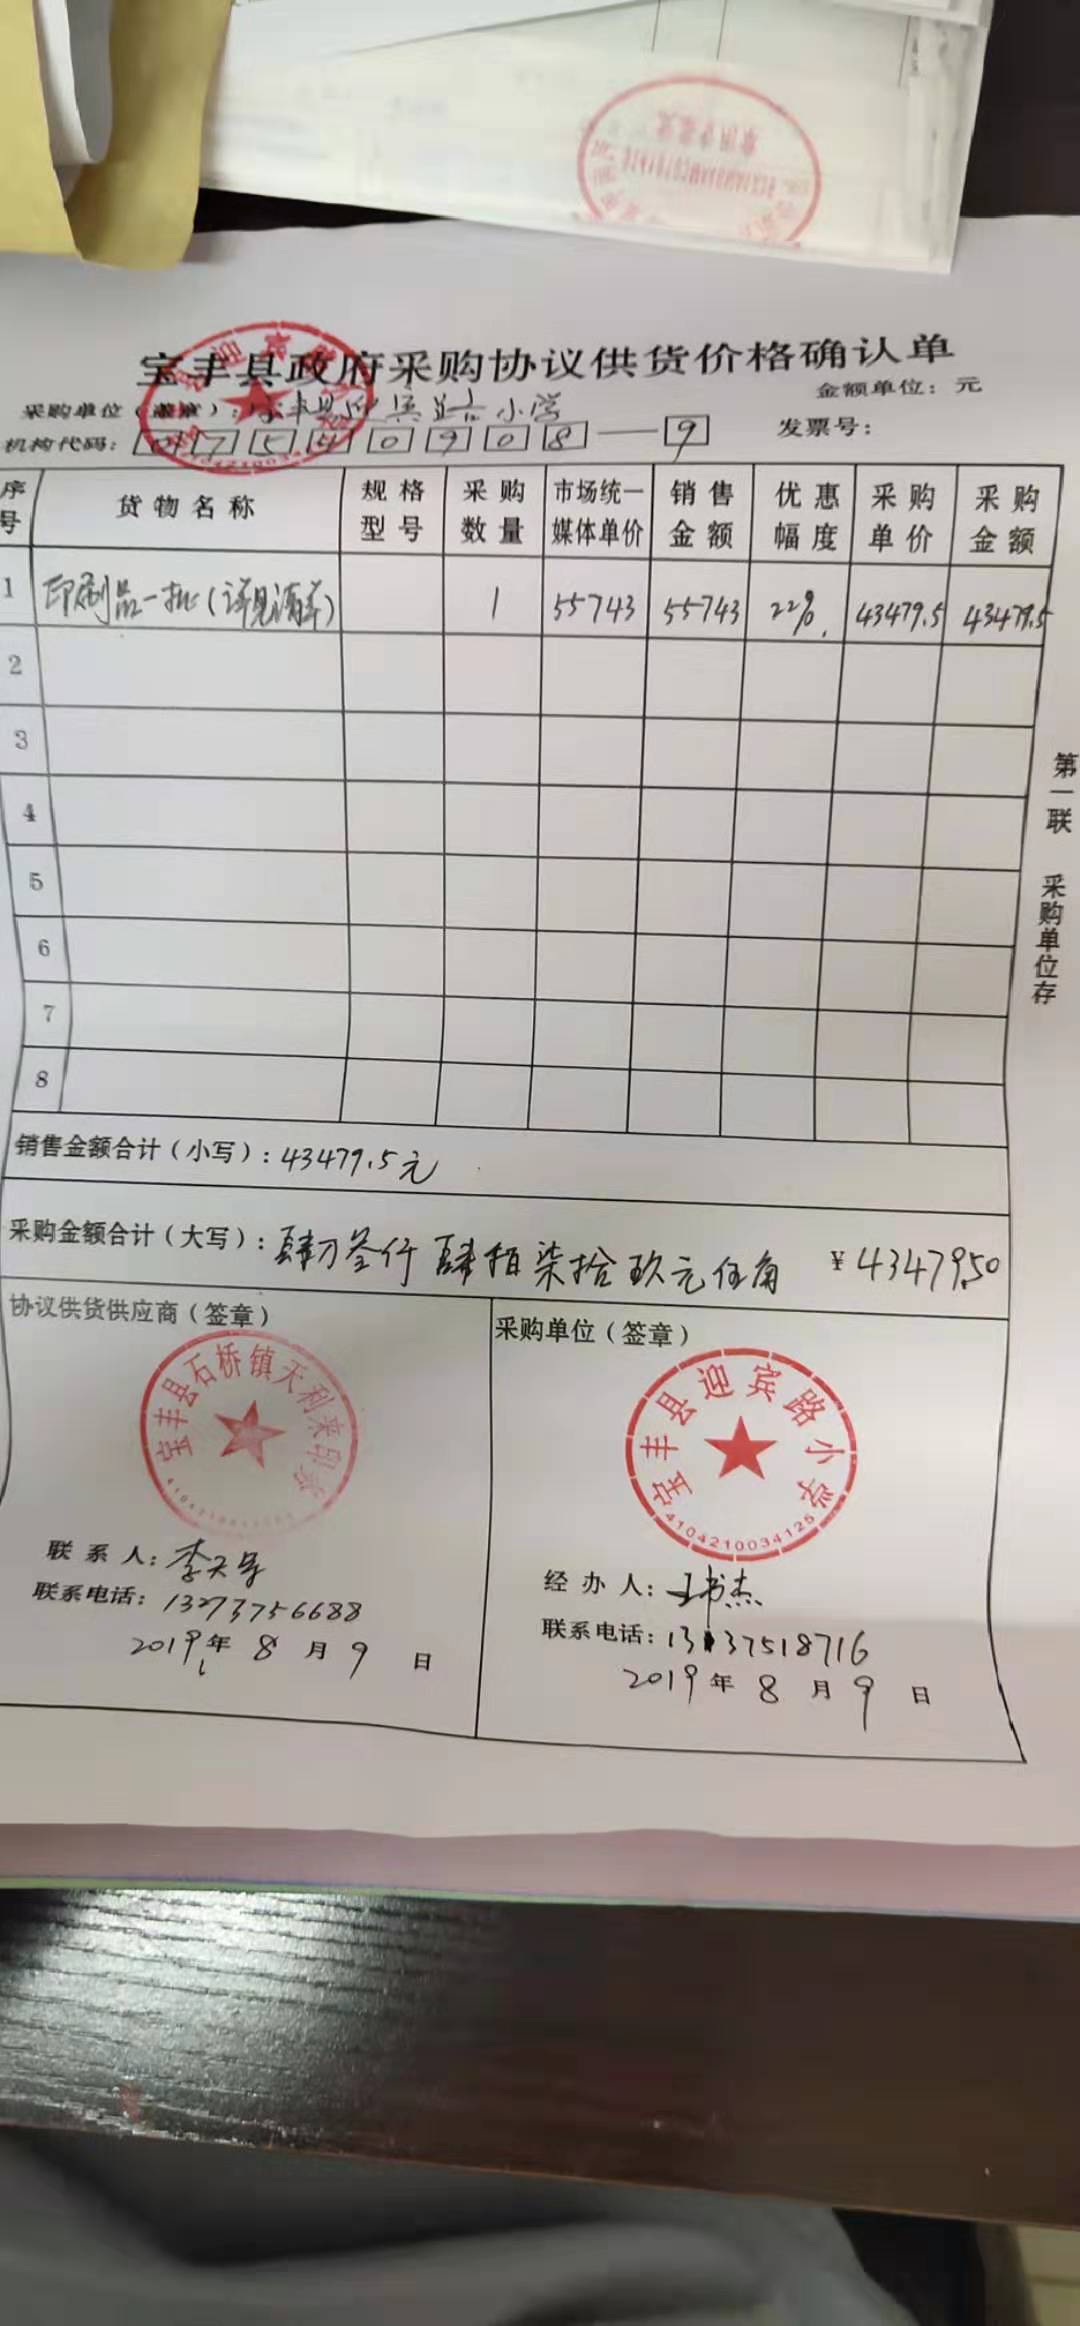 宝丰县政府采购协议供货价格确认单
金额单位：元
采购单位（盖章）：宝丰县迎宾路小学
机构代码：0 7 5 4 0 9 0 8 — 9 发票号：
序号 货物名称 规格型号 采购数量 市场统一媒体单价 销售金额 优惠幅度 采购单价 采购金额
1 印刷品一批（详见清单） 1 55743 55743 22% 43479.5 43479.5
2
3
4
5
6
7
8
第一联 采购单位存
销售金额合计（小写）：43479.5元
采购金额合计（大写）：肆万叁仟肆佰柒拾玖元伍角 ¥43479.50
协议供货供应商（签章）
宝丰县石桥镇天利来印务
联系人：李天号
联系电话：13273756688
2019年8月9日
采购单位（签章）
宝丰县迎宾路小学
4104210034125
经办人：王书杰
联系电话：13137518716
2019年8月9日